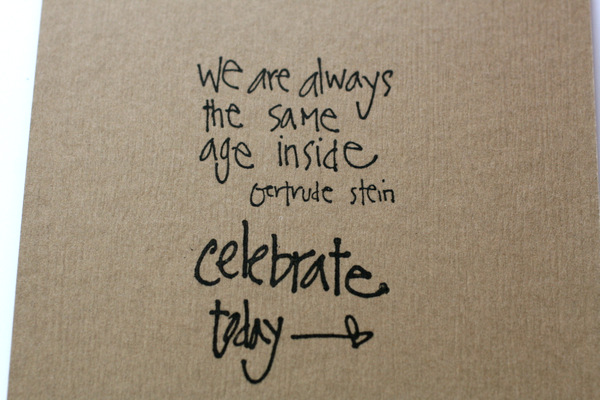 we are always
the same
age inside
Gertrude stein
celebrate
today